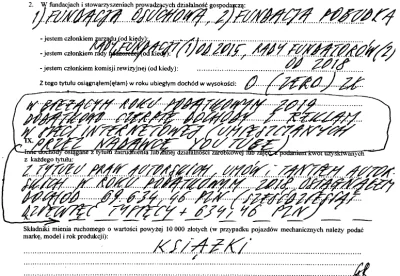 2. W fundacjach i stowarzyszeniach prowadzących działalność gospodarczą:
1) FUNDACJA OSUCHOWA, 2) FUNDACJA POBUDKA
- jestem członkiem zarządu (od kiedy):
RADY FUNDACJI (1) OD 2015, RADY FUNDATORÓW (2)
- jestem członkiem rady nadzorczej (od kiedy):
OD 2018
- jestem członkiem komisji rewizyjnej (od kiedy):
Z tego tytułu osiągnąłem(ęłam) w roku ubiegłym dochód w wysokości: 0 (ZERO) ZŁ
W BIEŻĄCYM ROKU PODATKOWYM 2019
DODATKOWO CZERPIĘ DOCHODY Z REKLAM
W SIECI INTERNETOWEJ UMIESZCZANYCH
PRZEZ NADAWCĘ YOU TUBE
Inne dochody osiągane z tytułu zatrudnienia lub innej działalności zarobkowej lub zajęć, z podaniem kwot uzyskiwanych
z każdego tytułu:
Z TYTUŁU PRAW AUTORSKICH, UMÓW I TANTIEM AUTOR-
SKICH W ROKU PODATKOWYM 2018 OSIĄGNĄŁEM
DOCHÓD 69.634,46 PLN (SZEŚĆDZIESIĄT
DZIEWIĘĆ TYSIĘCY + 634,46 PLN)
Składniki mienia ruchomego o wartości powyżej 10 000 złotych (w przypadku pojazdów mechanicznych należy podać
markę, model i rok produkcji):
KSIĄŻKI